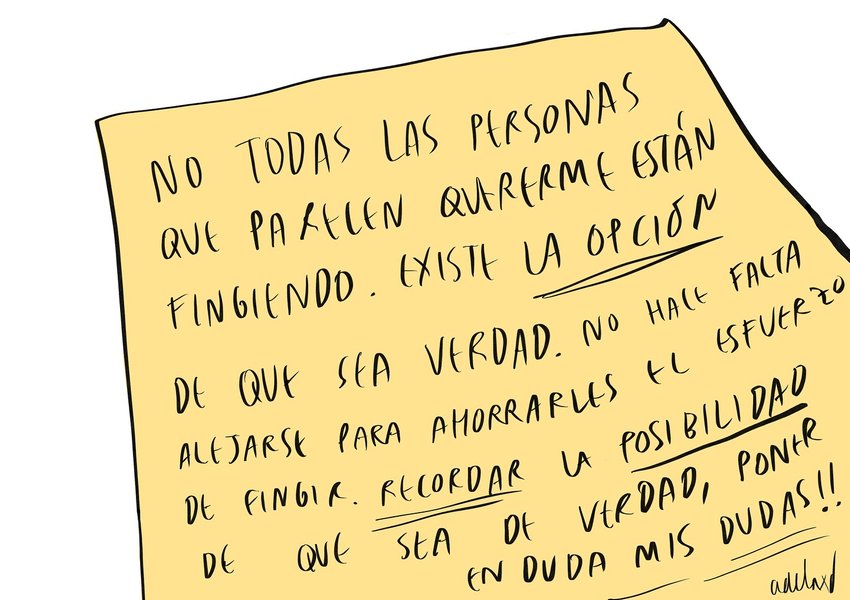 NO TODAS LAS PERSONAS
QUE PARECEN QUERERME ESTÁN
FINGIENDO. EXISTE LA OPCIÓN
DE QUE SEA VERDAD. NO HACE FALTA
ALEJARSE PARA AHORRARLES EL ESFUERZO
DE FINGIR. RECORDAR LA POSIBILIDAD
DE QUE SEA DE VERDAD, PONER
EN DUDA MIS DUDAS!!